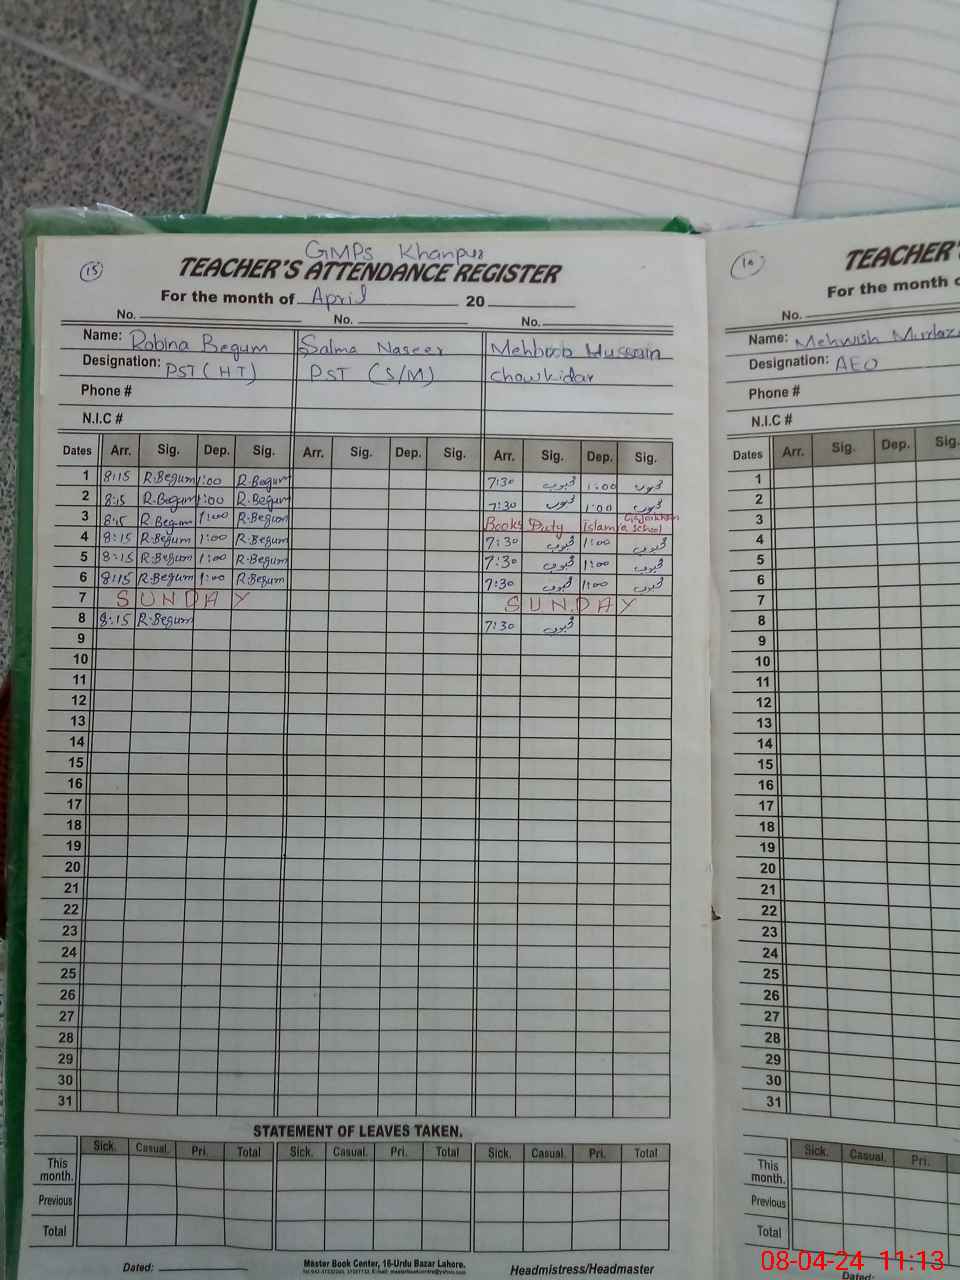 GMPs Khanpur
15
TEACHER'S ATTENDANCE REGISTER
For the month of April 20
No. No. No.
Name: Robina Begum Salma Naseer Mehboob Hussain
Designation: PST (HT) PST (S/M) Chowkidar
Phone #
N.I.C #
Dates Arr. Sig. Dep. Sig. Arr. Sig. Dep. Sig. Arr. Sig. Dep. Sig.
1 8:15 R.Begum 1:00 R.Begum 7:30 محبوب 1:00 محبوب
2 8:15 R.Begum 1:00 R.Begum 7:30 محبوب 1:00 محبوب
3 8:15 R.Begum 1:00 R.Begum Books Duty Islamia School
4 8:15 R.Begum 1:00 R.Begum 7:30 محبوب 1:00 محبوب
5 8:15 R.Begum 1:00 R.Begum 7:30 محبوب 1:00 محبوب
6 8:15 R.Begum 1:00 R.Begum 7:30 محبوب 1:00 محبوب
7 SUNDAY SUNDAY
8 8:15 R.Begum 7:30 محبوب
9
10
11
12
13
14
15
16
17
18
19
20
21
22
23
24
25
26
27
28
29
30
31
STATEMENT OF LEAVES TAKEN.
Sick. Casual. Pri. Total Sick. Casual. Pri. Total Sick. Casual. Pri. Total
This month.
Previous
Total
Dated: Master Book Center, 16-Urdu Bazar Lahore. Headmistress/Headmaster
TEACHER'S
For the month
No.
Name: Mehwish
Designation: AEO
Phone #
N.I.C #
Dates Arr. Sig. Dep. Sig.
1
2
3
4
5
6
7
8
9
10
11
12
13
14
15
16
17
18
19
20
21
22
23
24
25
26
27
28
29
30
31
Sick. Casual. Pri.
This month.
Previous
Total
Dated:
08-04-24 11:13